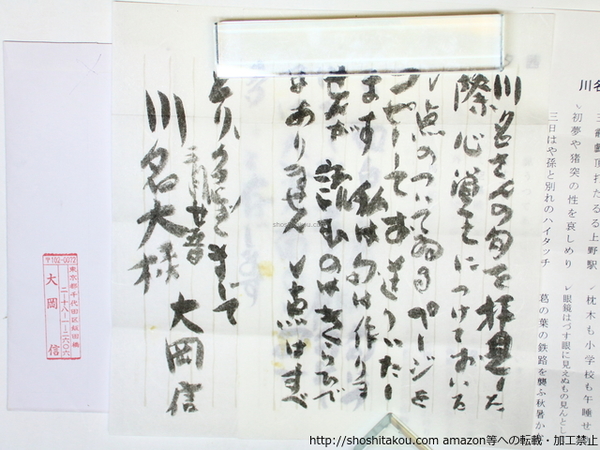 川名さんの句を拝見した
際心覚えにつけておいた
レ点のついてゐるページを
コピーしてお送りいたし
ます 私は句は作りま
せんが 読むのはきらひで
はありません レ点はすべ
とりいそぎまして
川名大様
大岡信
〒102-0072
東京都千代田区飯田橋
二-十八-一-二六〇六
大岡 信
川名
打たるる上野駅
レ初夢や猪突の性を哀しめり
三日はや孫と別れのハイタッチ
レ枕木も小学校も午睡せ
レ眼鏡はづす眼に見えぬもの見んとし
葛の葉の鉄路を襲ふ秋暑か
shoshitakou.com
http://shoshitakou.com amazon等への転載・加工禁止